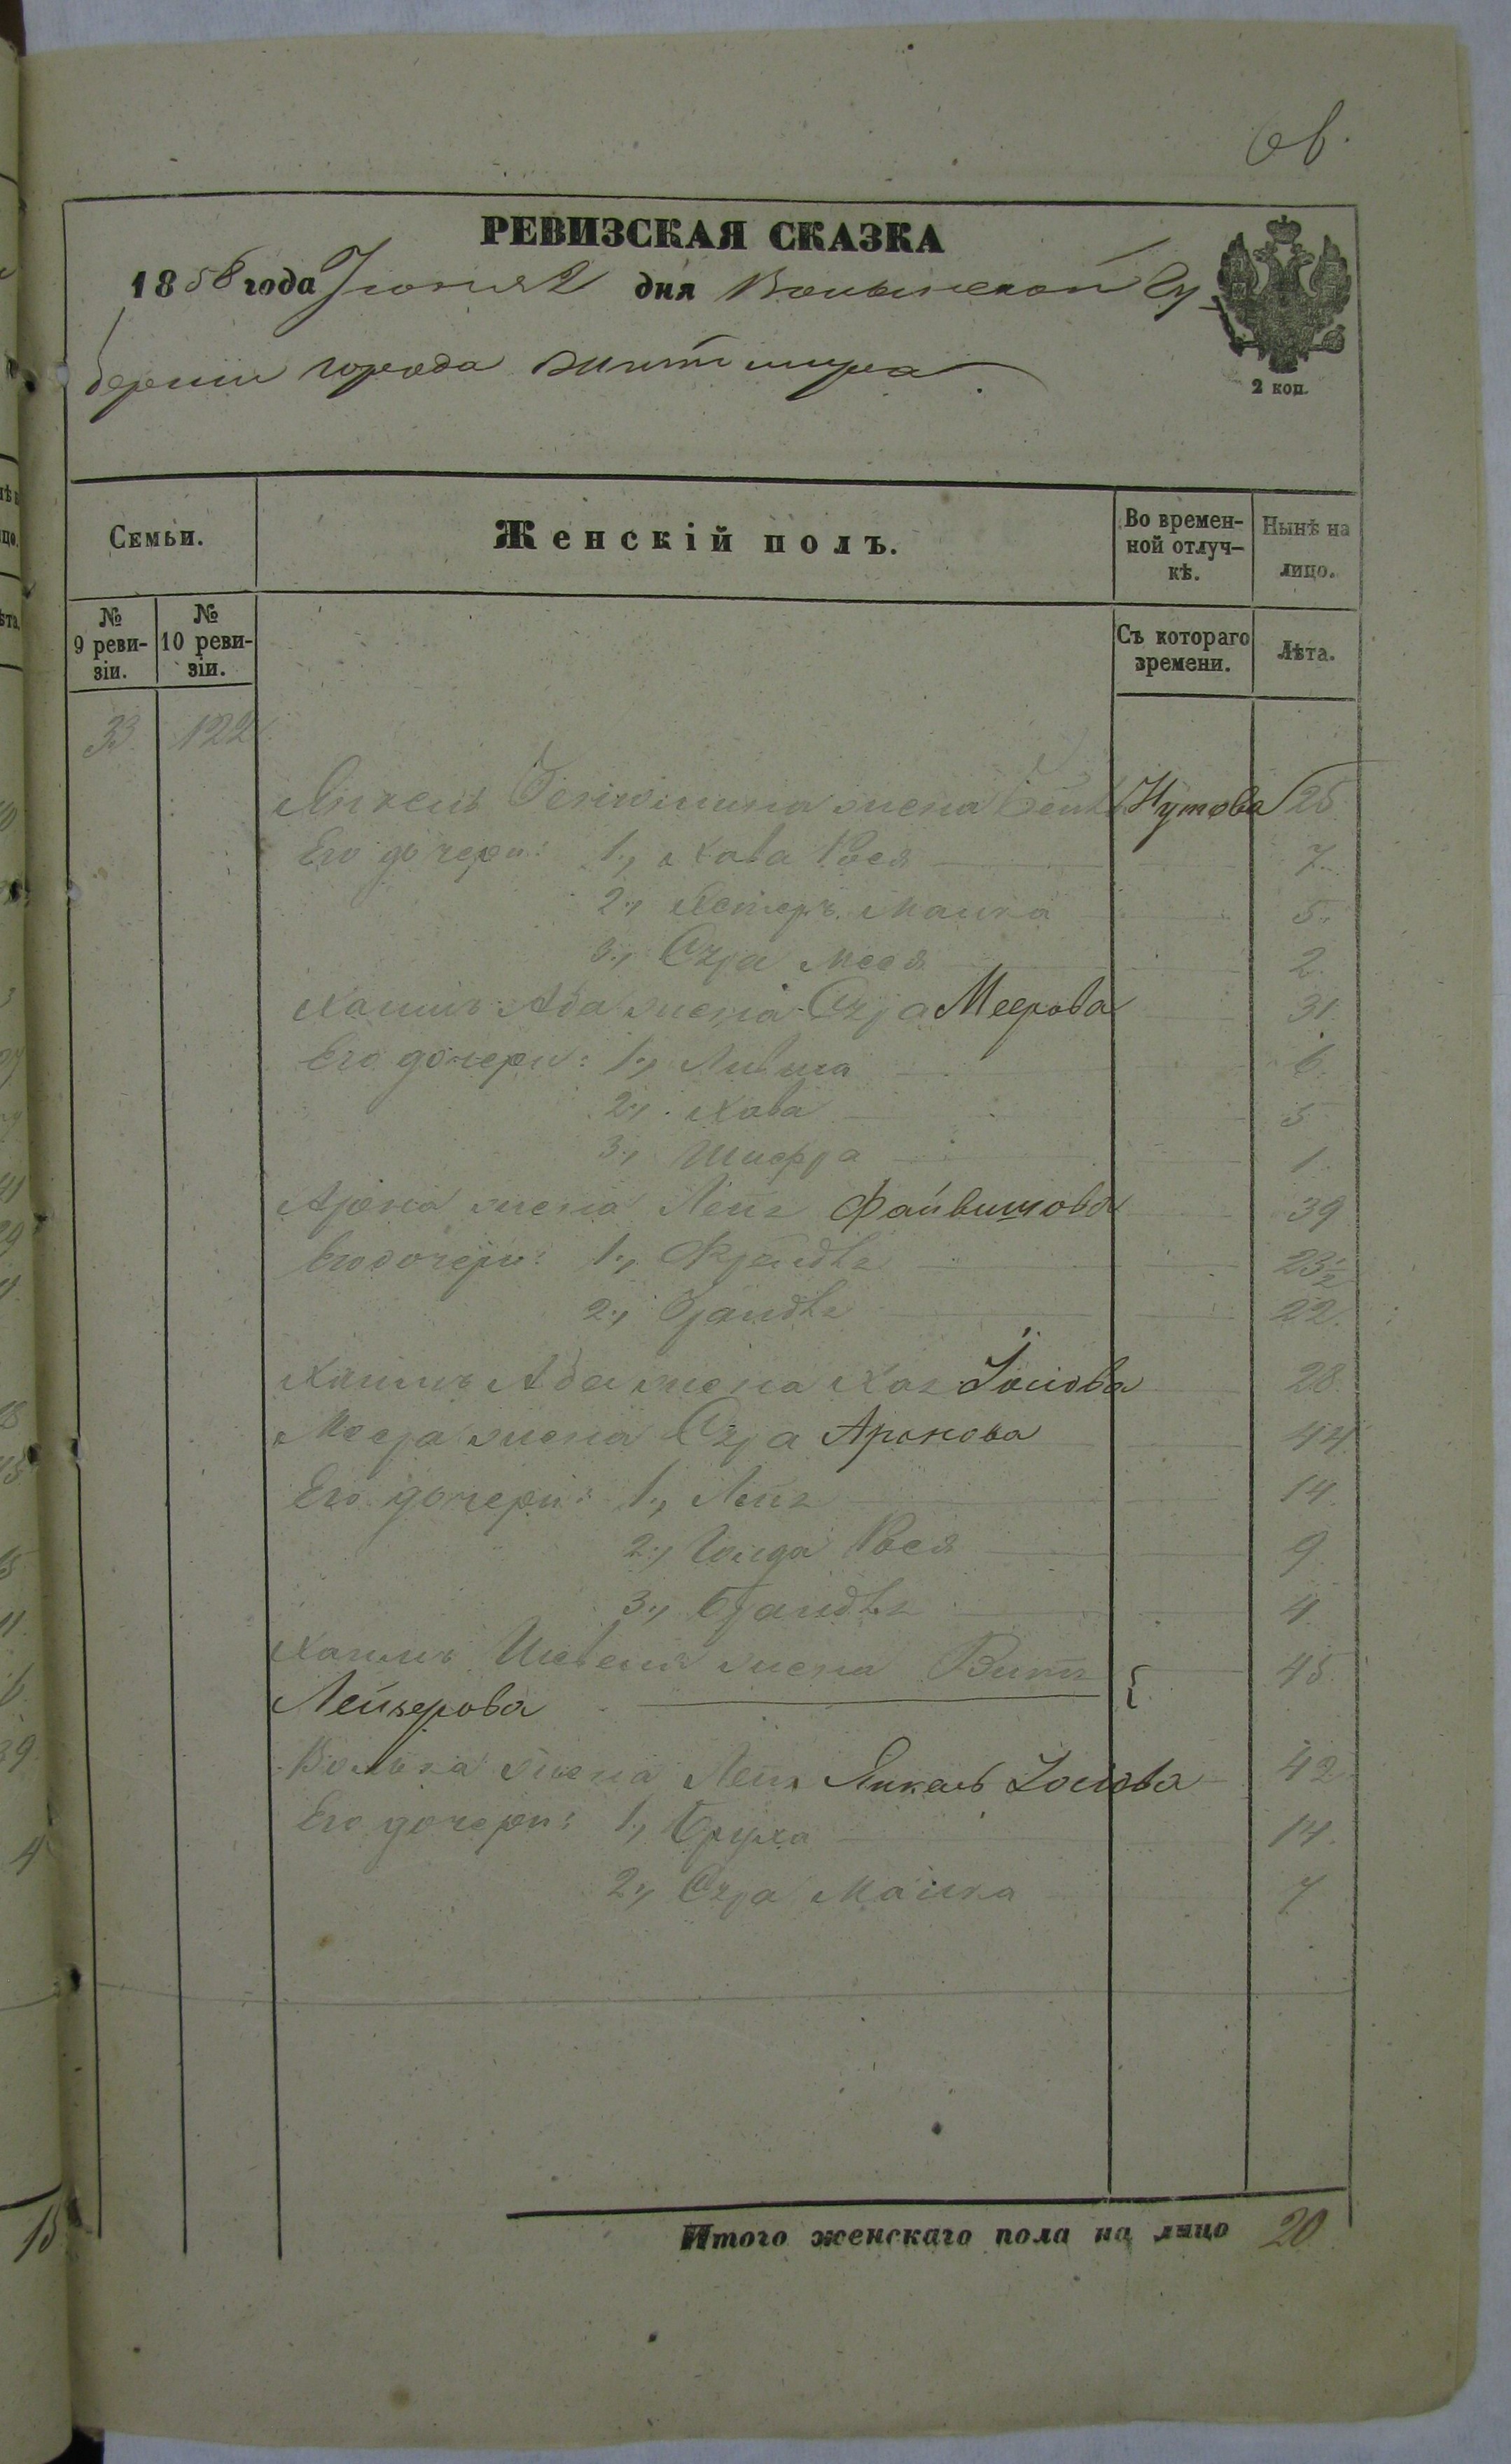 РЕВИЗСКАЯ СКАЗКА
1858 года Іюня 2 дня Волынской Гу-
берніи города Житомира
2 коп.
Семьи.
Женскій полъ.
Во времен-
ной отлуч-
кѣ.
Нынѣ на
лицо.
№
9 реви-
зіи.
№
10 реви-
зіи.
Съ котораго
времени.
Лѣта.
33. 122
жена Нутова 25
Его дочери: 1., Хава Рося 7
2., Эстеръ Малка 5
3., Сура 2.
Хаимъ Аба жена Сура Меерова 31
Его дочери: 1., Ливша 6.
2., Хава 5
3., Шифра 1
Арона жена Лея Файвишова 39
Его дочери: 1., Фрейдля 23 1/2
2., Брандля 22.
Хаимъ Аба жена Хая Іойлова 28.
Меера жена Сура Аронова 44
Его дочери: 1., Лея 14.
2., Голда Рося 9
3., Брандля 4
Хаимъ жена 45.
Лейзерова
Волька жена Лея Янкель Іослова 42
Его дочери: 1., Бруха 14.
2., Сура Малка 7
Итого женскаго пола на лицо 20